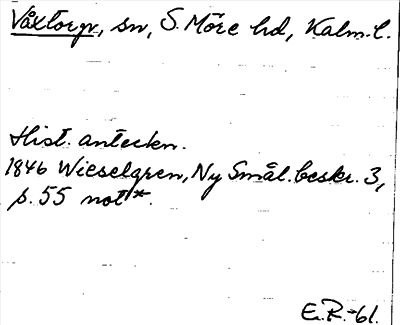 Våxtorp, sn, S. Möre hd, Kalm. l.
Hist. anteckn.
1846 Wieselgren, Ny Smål. beskr. 3,
p. 55 not*.
E.R.-61.